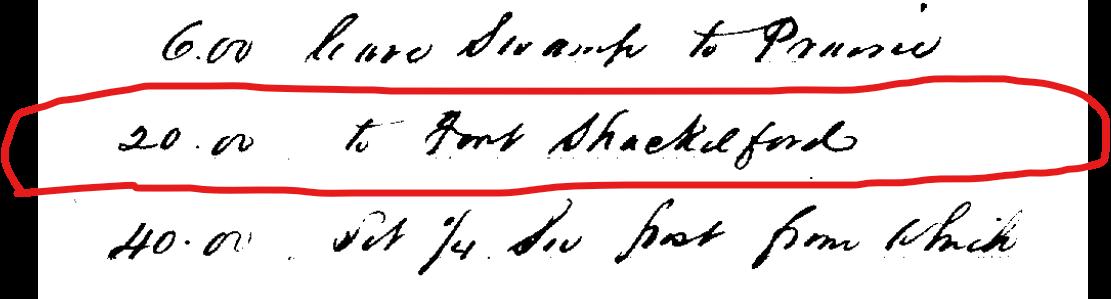 6.00 leave Swamp to Prairie
20.00 to Fort Shackelford
40.00 Set 1/4 Sec post from which